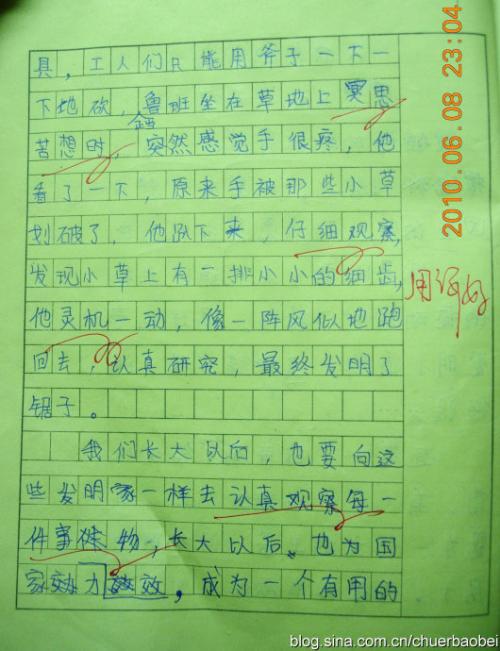 具，工人们只能用斧子一下一
下地砍，鲁班坐在草地上冥思
苦想时，突然感觉手很疼，他
看了一下，原来手被那些小草
划破了，他趴下来，仔细观察，
发现小草上有一排小小的细齿，
用词好
他灵机一动，像一阵风似地跑
回去，认真研究，最终发明了
锯子。
我们长大以后，也要向这
些发明家一样去认真观察每一
件事物，长大以后，也为国
家效力，成为一个有用的
2010.06.08 23:04
blog.sina.com.cn/chuerbaobei